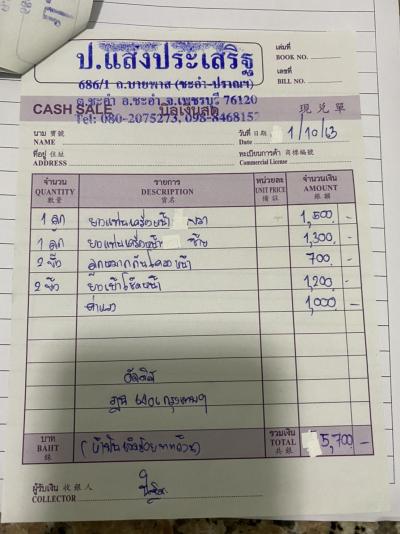 ป.แสงประเสริฐ
686/1 ถ.บายพาส (ชะอำ-ปราณฯ)
ต.ชะอำ อ.ชะอำ จ.เพชรบุรี 76120
Tel: 080-2075273, 098-8468157
เล่มที่
BOOK NO.
เลขที่
BILL NO.
CASH SALE บิลเงินสด 現兑單
นาม 寶號
NAME
วันที่ 日期 1/10/63
Date
ที่อยู่ 住址
ADDRESS
ทะเบียนการค้า 商標編號
Commercial License
จำนวน รายการ หน่วยละ จำนวนเงิน
QUANTITY DESCRIPTION UNIT PRICE AMOUNT
數量 貨名 備註 銀額
1 ลูก ยางแท่นเครื่องหน้า ขวา 1,500 -
1 ลูก ยางแท่นเครื่องหน้า ซ้าย 1,300 -
2 ตัว ลูกหมากกันโคลงหน้า 700 -
2 ตัว ยางเบ้าโช้คหน้า 1,200 -
ค่าแรง 1,000 -
กรุงเทพฯ
บาท รวมเงิน
BAHT TOTAL 5,700 -
銖 共銀
ผู้รับเงิน 收銀人
COLLECTOR